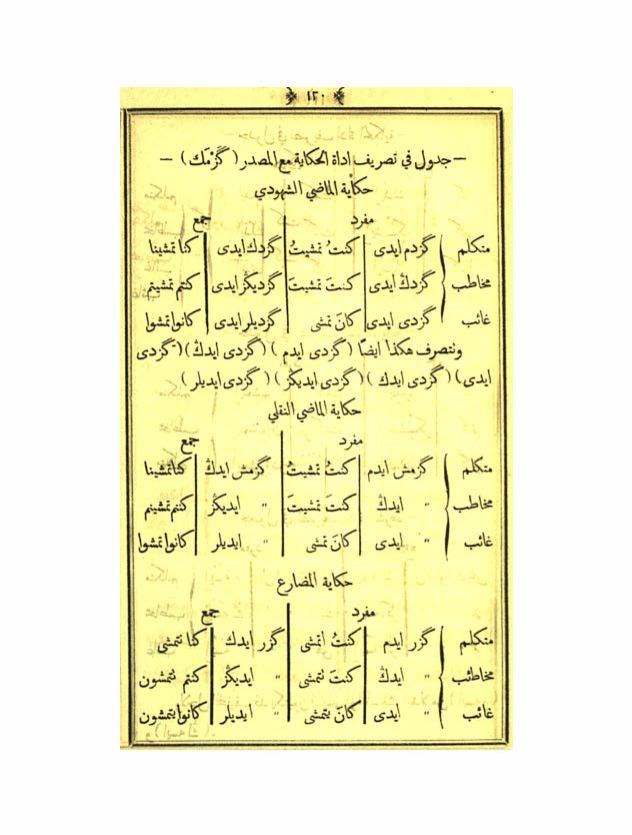 ١٢٠
— جدول في تصريف اداة الحكاية مع المصدر ( گزمَك ) —
حكاية الماضي الشهودي
مفرد جمع
متكلم گزدم ايدى كنتُ تمشيتُ گزدك ايدى كنا تمشينا
مخاطب گزدڭ ايدى كنتَ تمشيتَ گزديڭز ايدى كنتم تمشيتم
غائب گزدى ايدى كانَ تمشى گزديلر ايدى كانوا تمشوا
وتتصرف هكذا ايضًا (گزدى ايدم ) (گزدى ايدڭ) (گزدى
ايدى) (گزدى ايدك ) (گزدى ايديڭز ) ( گزدى ايديلر )
حكاية الماضي النقلي
مفرد جمع
متكلم گزمش ايدم كنتُ تمشيتُ گزمش ايدك كنا تمشينا
مخاطب " ايدڭ كنتَ تمشيتَ " ايديڭز كنتم تمشيتم
غائب " ايدى كانَ تمشى " ايديلر كانوا تمشوا
حكاية المضارع
مفرد جمع
متكلم گزر ايدم كنتُ اتمشى گزر ايدك كنا نتمشى
مخاطب " ايدڭ كنتَ تتمشى " ايديڭز كنتم تتمشون
غائب " ايدى كانَ يتمشى " ايديلر كانوا يتمشون